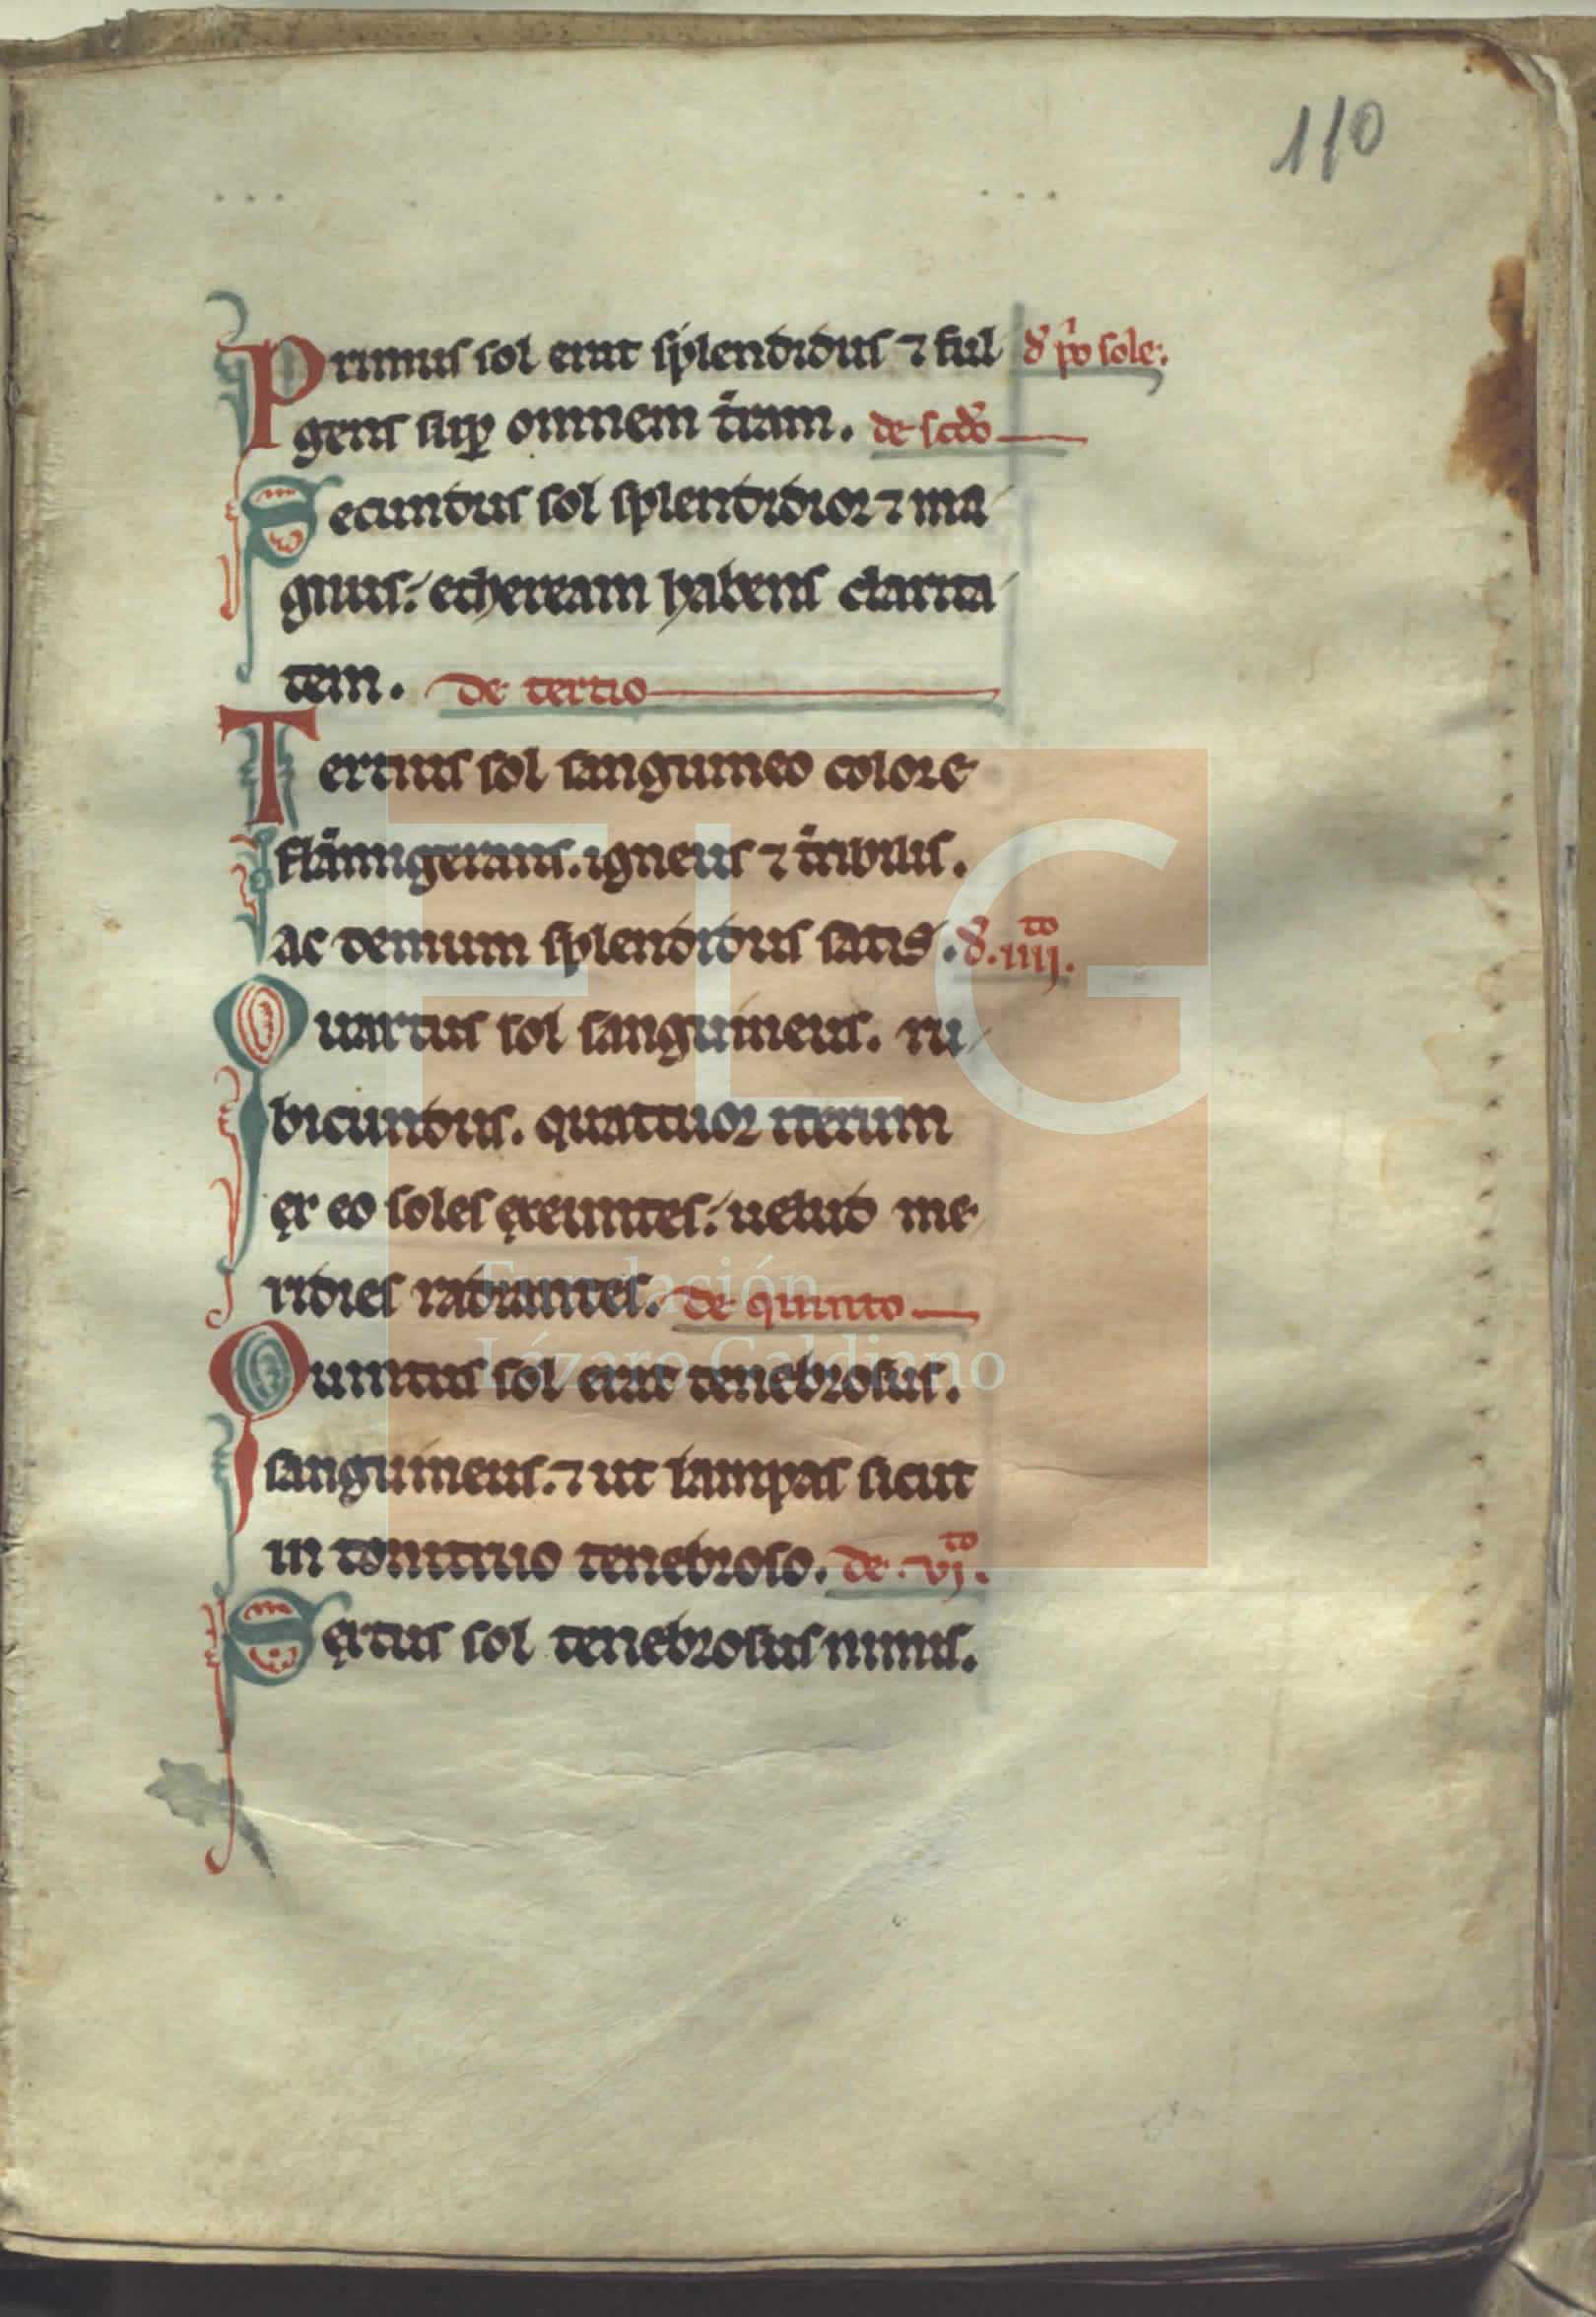 110
Primus sol erat splendidus ⁊ ful d' p'o sole.
gens sup omnem t'ram. de scd'o
Secundus sol splendidior ⁊ ma
gnus: etheream habens clarita
tem. de tertio
Tertius sol sanguineo colore
fla̅migerans. igneus ⁊ t'ribilis.
ac demum splendidus satis. d'. iiijto.
Quartus sol sanguineus. ru
bicundus. quattuor iterum
ęx eo soles ęxeuntes: uelud me
ridies radiantes. de quinto
Quintus sol erat tenebrosus.
sanguineus. ⁊ ut lampas sicut
in tonitruo tenebroso. de. vjto.
Sęxtus sol tenebrosus nimis.
FLG
Fundación
Lázaro Galdiano